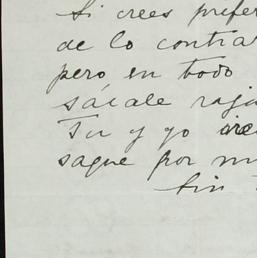 Si crees prefer
de lo contrar
pero en todo
sácale raja
Tu y yo
saque por mu
Sin